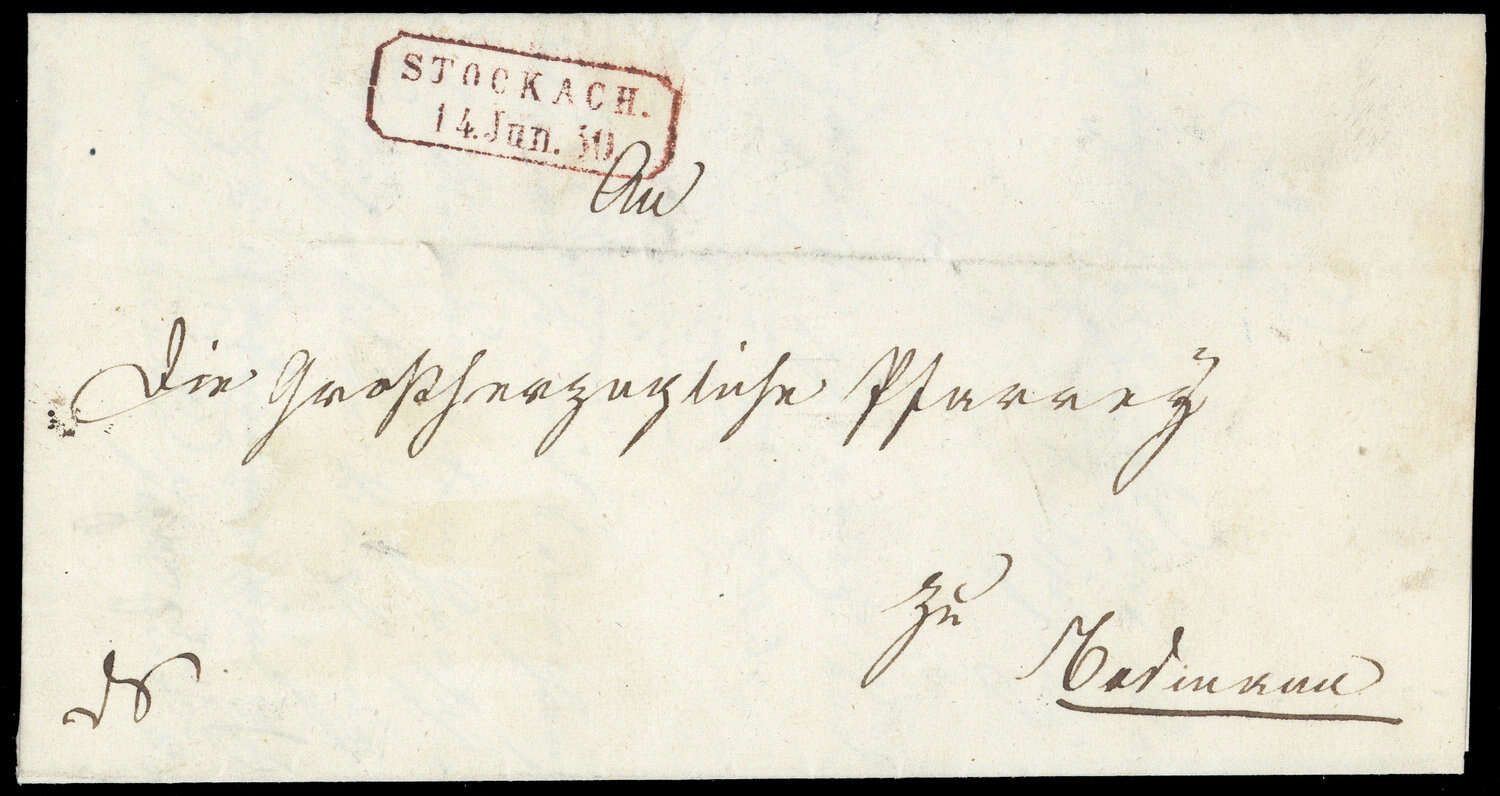 STOCKACH.
14. Jun. 50
An
die Großherzogliche Pfarrey
zu
Bodmann
DS